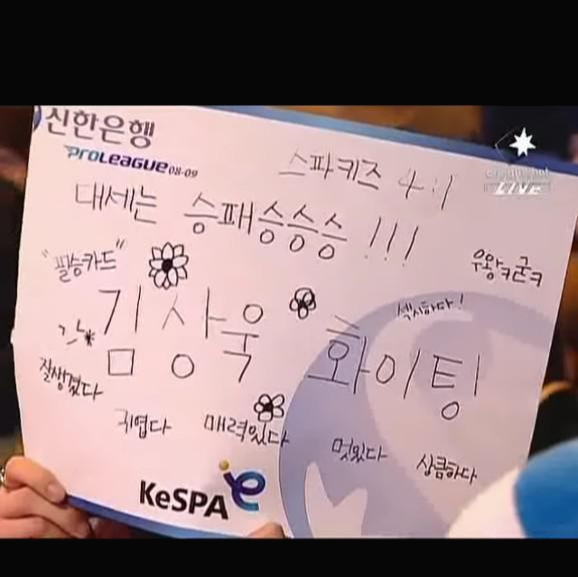 신한은행
PROLEAGUE 08-09
스파키즈 4:1
LIVE
대세는 승패승승승 !!!
"필승카드"
우왕ㅋ굳ㅋ
섹시하다!
김상욱 화이팅
잘생겼다
귀엽다
매력있다
멋있다
상큼하다
KeSPA e